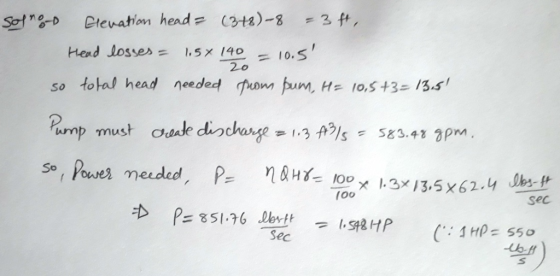 Solⁿ⇒ Elevation head = (3+8)-8 = 3 ft,
Head losses = 1.5 × 140/20 = 10.5'
so total head needed from pum, H = 10.5+3 = 13.5'
Pump must create discharge = 1.3 ft³/s = 583.48 gpm.
So, Power needed, P = ηQHγ = 100/100 × 1.3×13.5×62.4 lbs-ft/sec
⇒ P = 851.76 lbs-ft/sec = 1.548 HP (∵ 1 HP = 550 lb.ft/s)